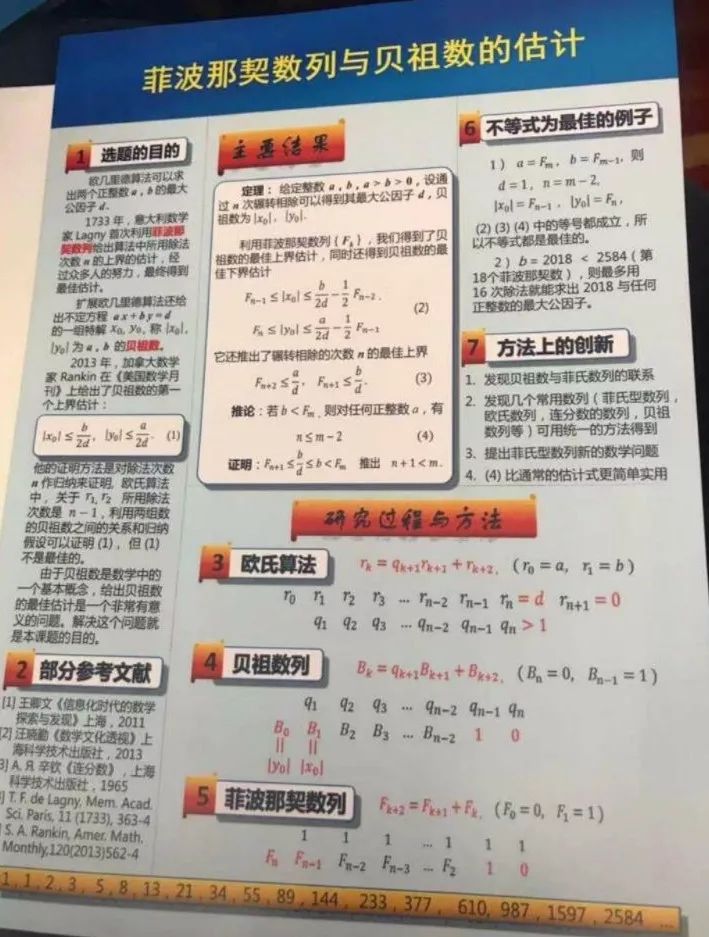 菲波那契数列与贝祖数的估计
1 选题的目的
欧几里德算法可以求
出两个正整数 a , b 的最大
公因子 d.
1733 年，意大利数学
家 Lagny 首次利用菲波那
契数列给出算法中所用除法
次数 n 的上界的估计，经
过众多人的努力，最终得到
最佳估计。
扩展欧几里德算法还给
出不定方程 ax+by=d
的一组特解 x₀, y₀, 称 |x₀|,
|y₀| 为 a , b 的贝祖数。
2013 年，加拿大数学
家 Rankin 在《美国数学月
刊》上给出了贝祖数的第一
个上界估计：
|x₀| ≤ b/2d, |y₀| ≤ a/2d. (1)
他的证明方法是对除法次数
n 作归纳来证明, 欧氏算法
中，关于 r₁, r₂ 所用除法
次数是 n − 1，利用两组数
的贝祖数之间的关系和归纳
假设可以证明 (1)，但 (1)
不是最佳的。
由于贝祖数是数学中的
一个基本概念，给出贝祖数
的最佳估计是一个非常有意
义的问题。解决这个问题就
是本课题的目的。
2 部分参考文献
[1] 王卿文《信息化时代的数学
探索与发现》上海，2011
[2] 汪晓勤《数学文化透视》上
海科学技术出版社，2013
3] A. Я. 辛钦《连分数》，上海
科学技术出版社，1965
] T. F. de Lagny, Mem. Acad.
Sci. Paris, 11 (1733), 363-4
] S. A. Rankin, Amer. Math.
Monthly,120(2013)562-4
主要结果
定理：给定整数 a , b , a > b > 0 , 设通
过 n 次辗转相除可以得到其最大公因子 d , 贝
祖数为 |x₀|， |y₀|.
利用菲波那契数列 { Fₖ } ，我们得到了贝
祖数的最佳上界估计，同时还得到贝祖数的最
佳下界估计
Fₙ₋₁ ≤ |x₀| ≤ b/2d − 1/2 Fₙ₋₂ ,
(2)
Fₙ ≤ |y₀| ≤ a/2d − 1/2 Fₙ₋₁
它还推出了辗转相除的次数 n 的最佳上界
Fₙ₊₂ ≤ a/d, Fₙ₊₁ ≤ b/d. (3)
推论：若 b < Fₘ , 则对任何正整数 a，有
n ≤ m − 2 (4)
证明：Fₙ₊₁ ≤ b/d ≤ b < Fₘ 推出 n + 1 < m.
6 不等式为最佳的例子
1 ) a = Fₘ , b = Fₘ₋₁, 则
d = 1 , n = m − 2,
|x₀| = Fₙ₋₁ , |y₀| = Fₙ ,
(2) (3) (4) 中的等号都成立，所
以不等式都是最佳的。
2 ) b = 2018 < 2584 ( 第
18个菲波那契数 ) ，则最多用
16 次除法就能求出 2018 与任何
正整数的最大公因子。
7 方法上的创新
1. 发现贝祖数与菲氏数列的联系
2. 发现几个常用数列 ( 菲氏型数列 ,
欧氏数列，连分数的数列，贝祖
数列等 ) 可用统一的方法得到
3. 提出菲氏型数列新的数学问题
4. (4) 比通常的估计式更简单实用
研究过程与方法
3 欧氏算法 rₖ = qₖ₊₁rₖ₊₁ + rₖ₊₂, ( r₀ = a, r₁ = b )
r₀ r₁ r₂ r₃ … rₙ₋₂ rₙ₋₁ rₙ = d rₙ₊₁ = 0
q₁ q₂ q₃ … qₙ₋₂ qₙ₋₁ qₙ > 1
4 贝祖数列 Bₖ = qₖ₊₁Bₖ₊₁ + Bₖ₊₂, ( Bₙ = 0, Bₙ₋₁ = 1 )
q₁ q₂ q₃ … qₙ₋₂ qₙ₋₁ qₙ
B₀ B₁ B₂ B₃ … Bₙ₋₂ 1 0
|| ||
|y₀| |x₀|
5 菲波那契数列 Fₖ₊₂ = Fₖ₊₁ + Fₖ, ( F₀ = 0, F₁ = 1 )
1 1 1 … 1 1 1
Fₙ Fₙ₋₁ Fₙ₋₂ Fₙ₋₃ … F₂ 1 0
1 , 1 , 2 , 3 , 5 , 8 , 13 , 21 , 34 , 55 , 89 , 144 , 233 , 377 , 610, 987 , 1597 , 2584 …